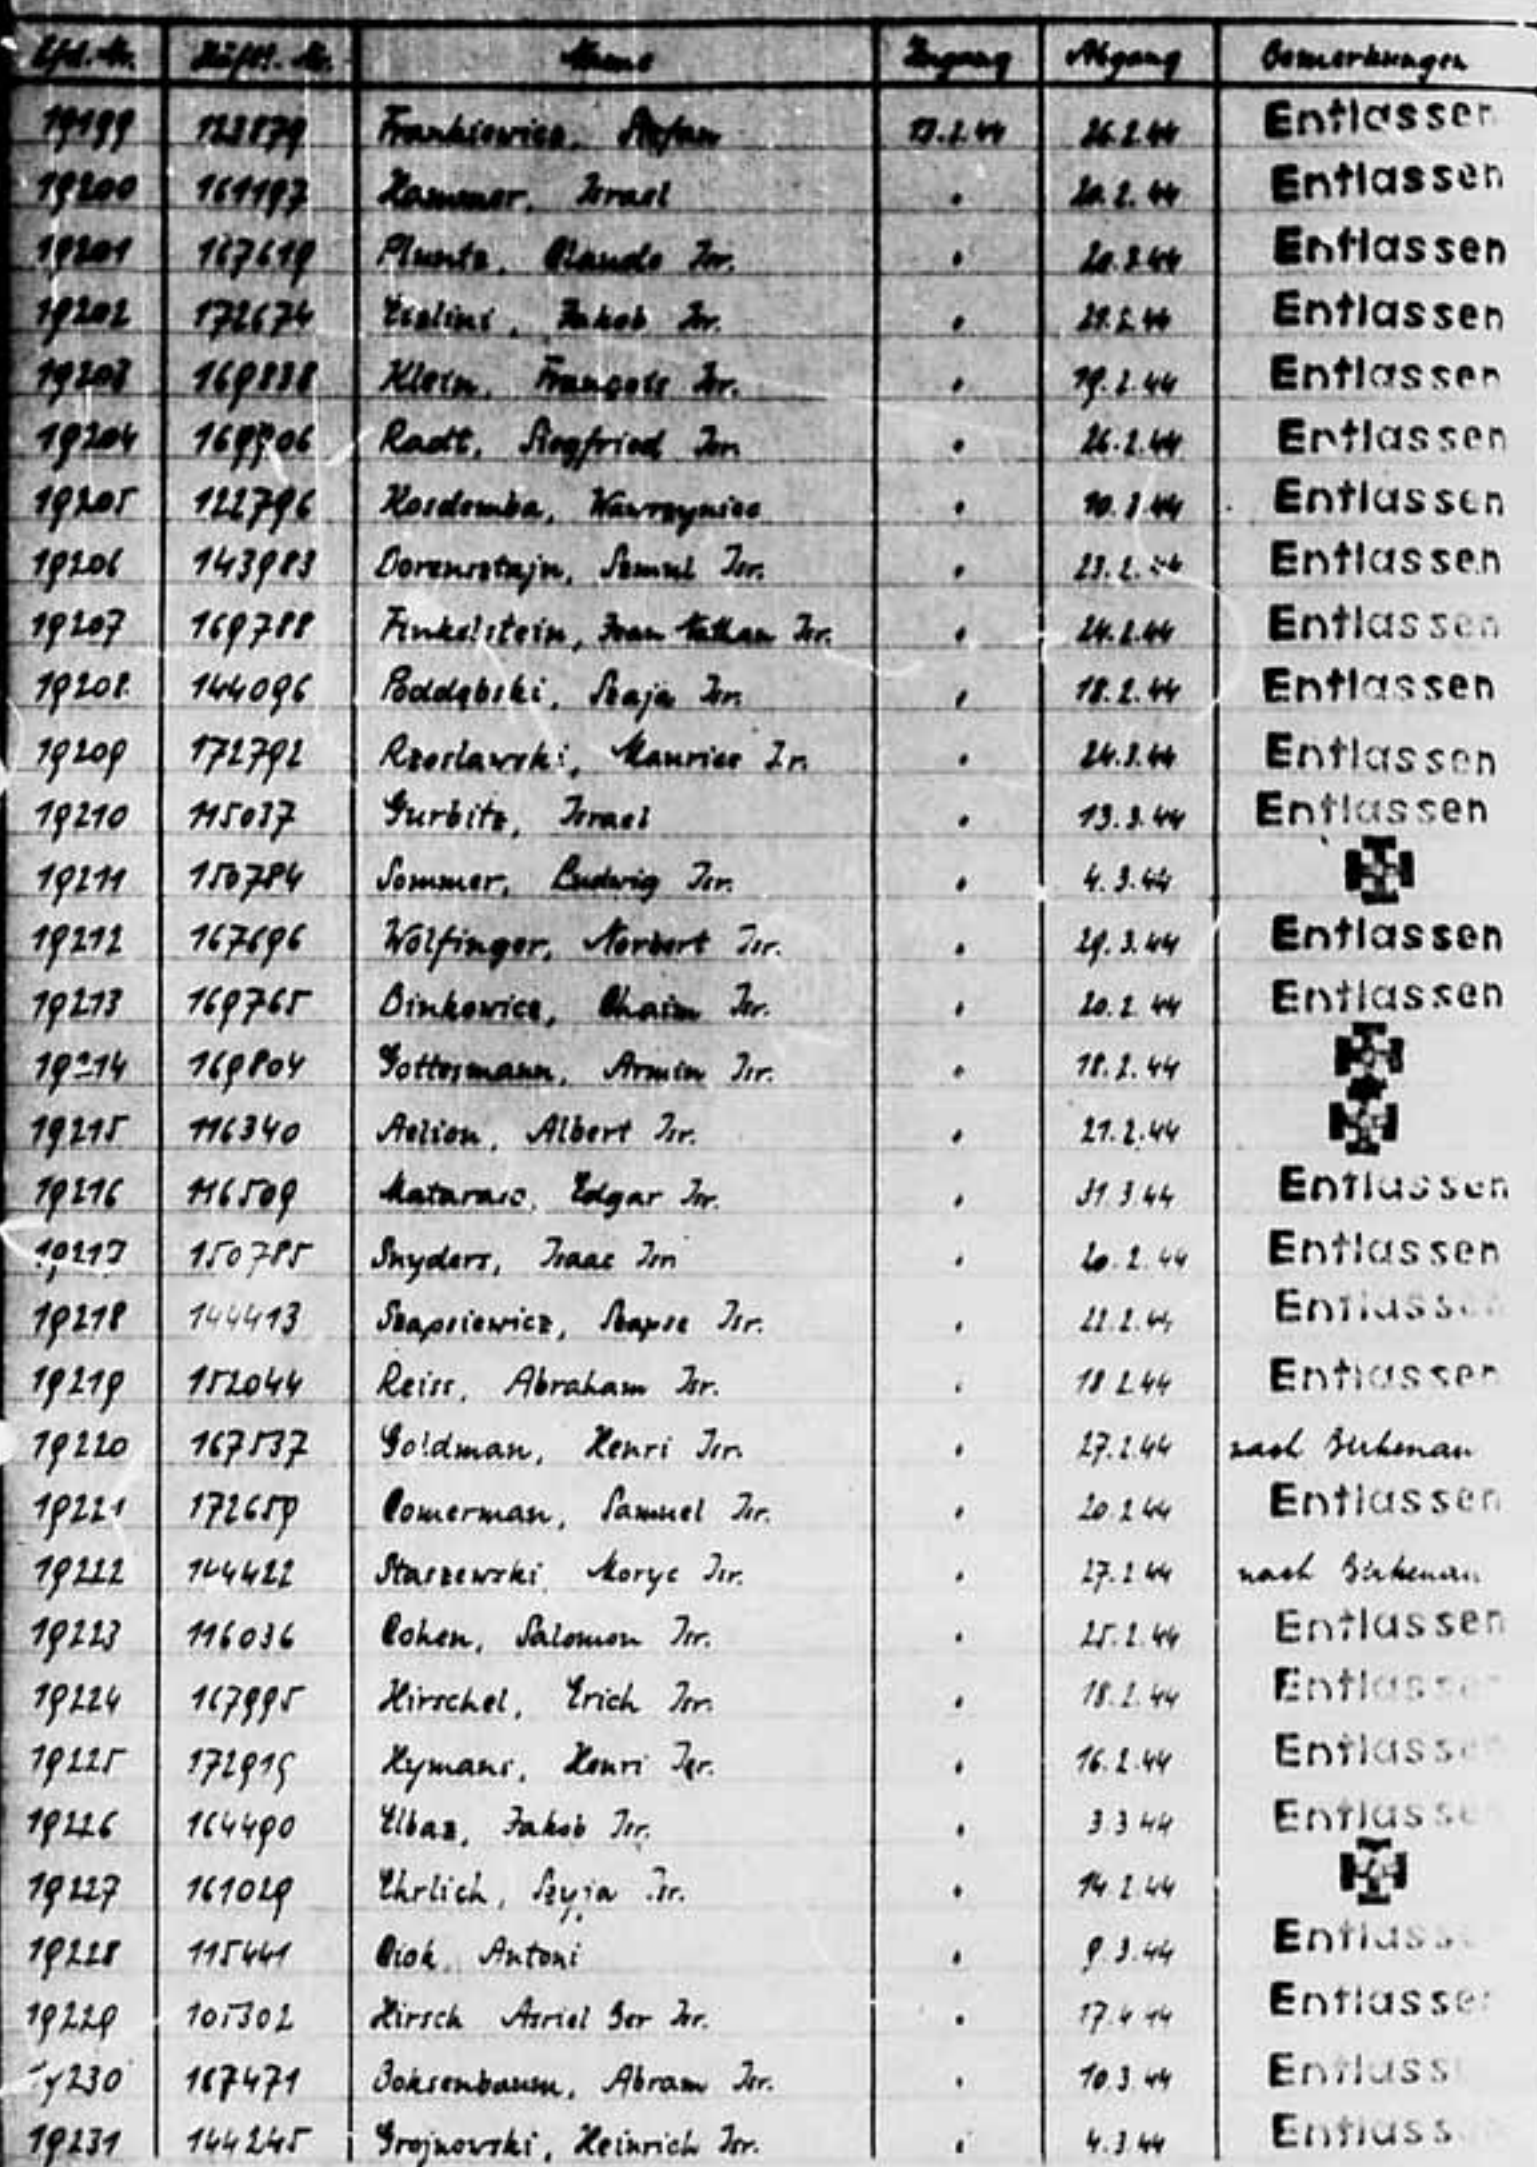 Lfd.-Nr. Häftl.-Nr. Name Zugang Abgang Bemerkungen
19199 123879 Frankiewicz, Stefan 13.2.44 26.2.44 Entlassen
19200 161197 Hammer, Israel " 20.2.44 Entlassen
19201 167619 Claude Isr. " 20.2.44 Entlassen
19202 172674 Jakob Isr. " 21.2.44 Entlassen
19203 169838 Klein, François Isr. " 19.2.44 Entlassen
19204 Radt, Siegfried Isr. " 26.2.44 Entlassen
19205 122796 Kosdomba, Wawrzyniec " Entlassen
19206 143983 Dorensztajn, Szmul Isr. " 23.2.44 Entlassen
19207 169788 Finkelstein, Nathan Isr. " 24.2.44 Entlassen
19208 144096 Poddębski, Szaja Isr. " 18.2.44 Entlassen
19209 172792 Rzoslawski, Maurice Isr. " 24.2.44 Entlassen
19210 115037 Gurbitz, Israel " 13.3.44 Entlassen
19211 150784 Sommer, Ludwig Isr. " 4.3.44
19212 167696 Wolfinger, Norbert Isr. " 29.3.44 Entlassen
19213 169765 Binkowicz, Chaim Isr. " 20.2.44 Entlassen
19214 169804 Gottesmann, Armin Isr. " 18.2.44
19215 116340 Aelion, Albert Isr. " 21.2.44
19216 116509 Mataraso, Edgar Isr. " 31.3.44 Entlassen
19217 150785 Snyders, Isaac Isr. " 20.2.44 Entlassen
19218 144413 Szapsiewicz, Szapse Isr. " 22.2.44 Entlassen
19219 152044 Reiss, Abraham Isr. " 18.2.44 Entlassen
19220 167537 Goldman, Henri Isr. " 27.2.44 nach Birkenau
19221 172659 Comerman, Samuel Isr. " 20.2.44 Entlassen
19222 144422 Staszewski, Moryc Isr. " 27.2.44 nach Birkenau
19223 116036 Cohen, Salomon Isr. " 25.2.44 Entlassen
19224 167995 Hirschel, Erich Isr. " 18.2.44 Entlassen
19225 172915 Hymans, Henri Isr. " 16.2.44 Entlassen
19226 164490 Elbaz, Jakob Isr. " 3.3.44 Entlassen
19227 161029 Ehrlich, Szyja Isr. " 14.2.44
19228 115441 Antoni " 9.3.44 Entlassen
19229 105302 Hirsch Asriel Ber Isr. " 17.4.44 Entlassen
19230 167471 Boksenbaum, Abram Isr. " 10.3.44 Entlassen
19231 144245 Grojnowski, Heinrich Isr. " 4.3.44 Entlassen